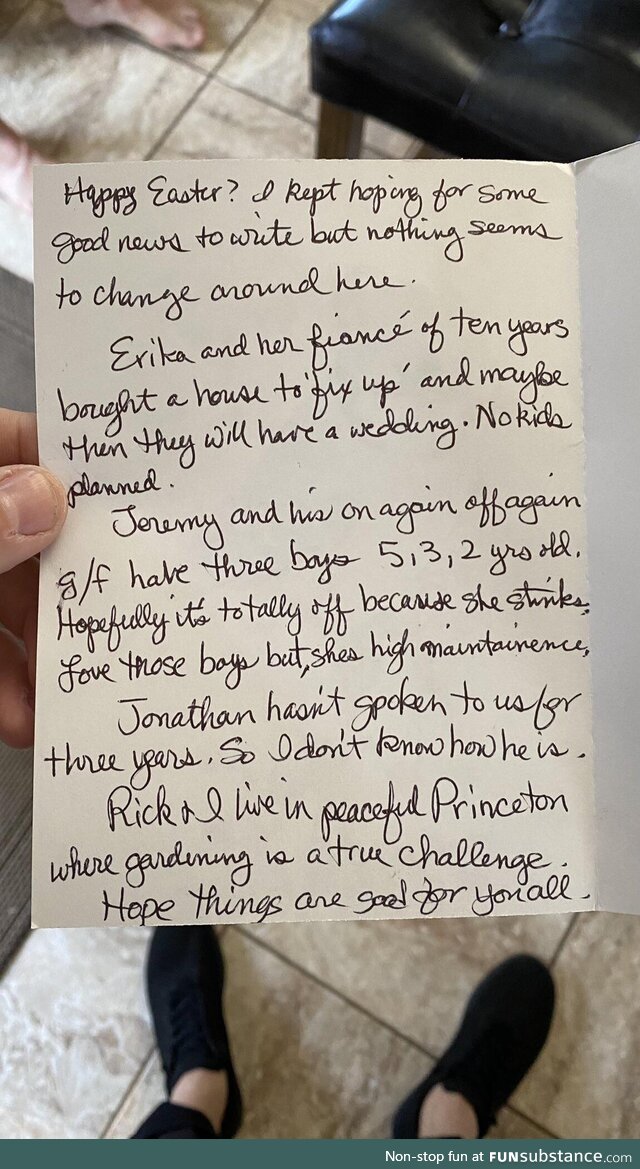 Happy Easter? I kept hoping for some
good news to write but nothing seems
to change around here.
Erika and her fiancé of ten years
bought a house to 'fix up' and maybe
then they will have a wedding. No kids
planned.
Jeremy and his on again off again
g/f have three boys 5, 3, 2 yrs old.
Hopefully it's totally off because she stinks.
Love those boys but, shes high maintainence,
Jonathan hasn't spoken to us for
three years. So I don't know how he is.
Rick & I live in peaceful Princeton
where gardening is a true challenge.
Hope things are good for you all.
Non-stop fun at FUNsubstance.com